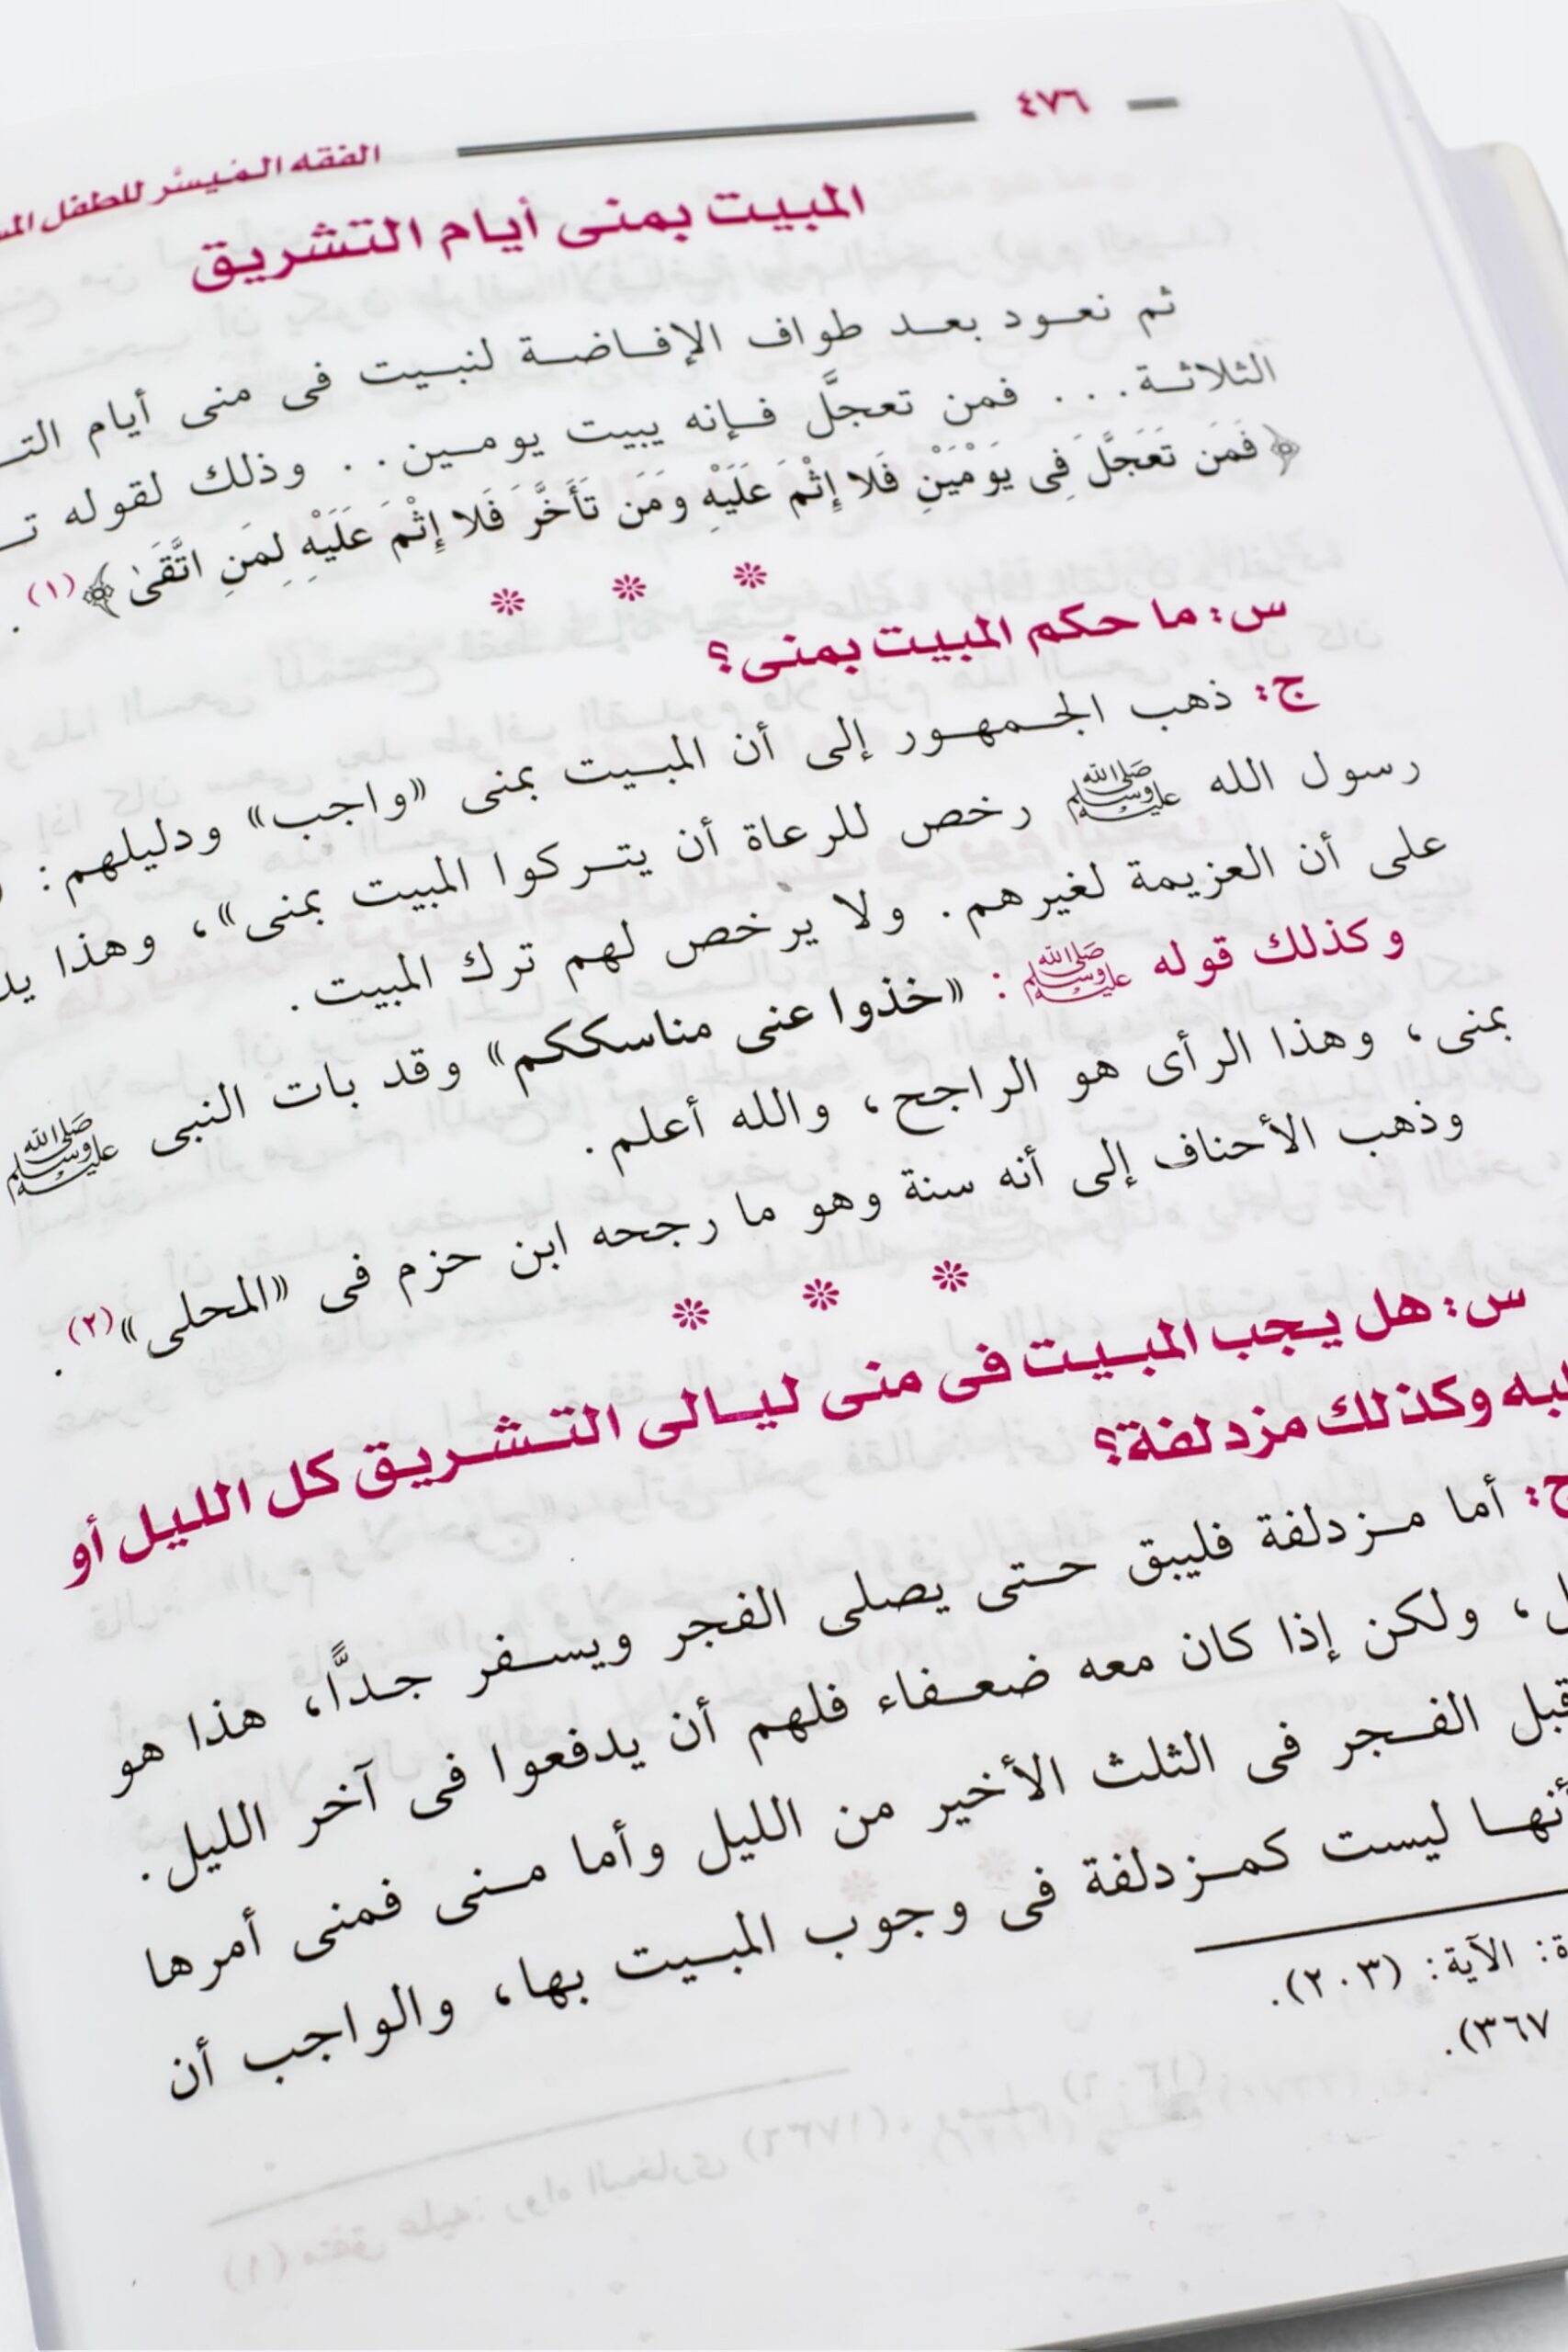 ٤٧٦
الفقه الميسَّر للطفل
المبيت بمنى أيام التشريق
ثم نعود بعد طواف الإفاضة لنبيت فى منى أيام
الثلاثة... فمن تعجلَّ فإنه يبيت يومين.. وذلك لقوله
﴿فَمَن تَعَجَّلَ فِى يَوْمَيْنِ فَلا إِثْمَ عَلَيْهِ وَمَن تَأَخَّرَ فَلا إِثْمَ عَلَيْهِ لِمَنِ اتَّقَىٰ﴾(١).
* * *
س: ما حكم المبيت بمنى؟
ج: ذهب الجمهور إلى أن المبيت بمنى «واجب» ودليلهم:
رسول الله ﷺ رخص للرعاة أن يتركوا المبيت بمنى»، وهذا
على أن العزيمة لغيرهم. ولا يرخص لهم ترك المبيت.
وكذلك قوله ﷺ: «خذوا عنى مناسككم» وقد بات النبى ﷺ
بمنى، وهذا الرأى هو الراجح، والله أعلم.
وذهب الأحناف إلى أنه سنة وهو ما رجحه ابن حزم فى «المحلى»(٢).
* * *
س: هل يجب المبيت فى منى ليالى التشريق كل الليل أو
وكذلك مزدلفة؟
ج: أما مزدلفة فليبق حتى يصلى الفجر ويسفر جدًّا، هذا هو
، ولكن إذا كان معه ضعفاء فلهم أن يدفعوا فى آخر الليل.
قبل الفجر فى الثلث الأخير من الليل وأما منى فمنى أمرها
أنها ليست كمزدلفة فى وجوب المبيت بها، والواجب أن
الآية: (٢٠٣).
٣٦٧).